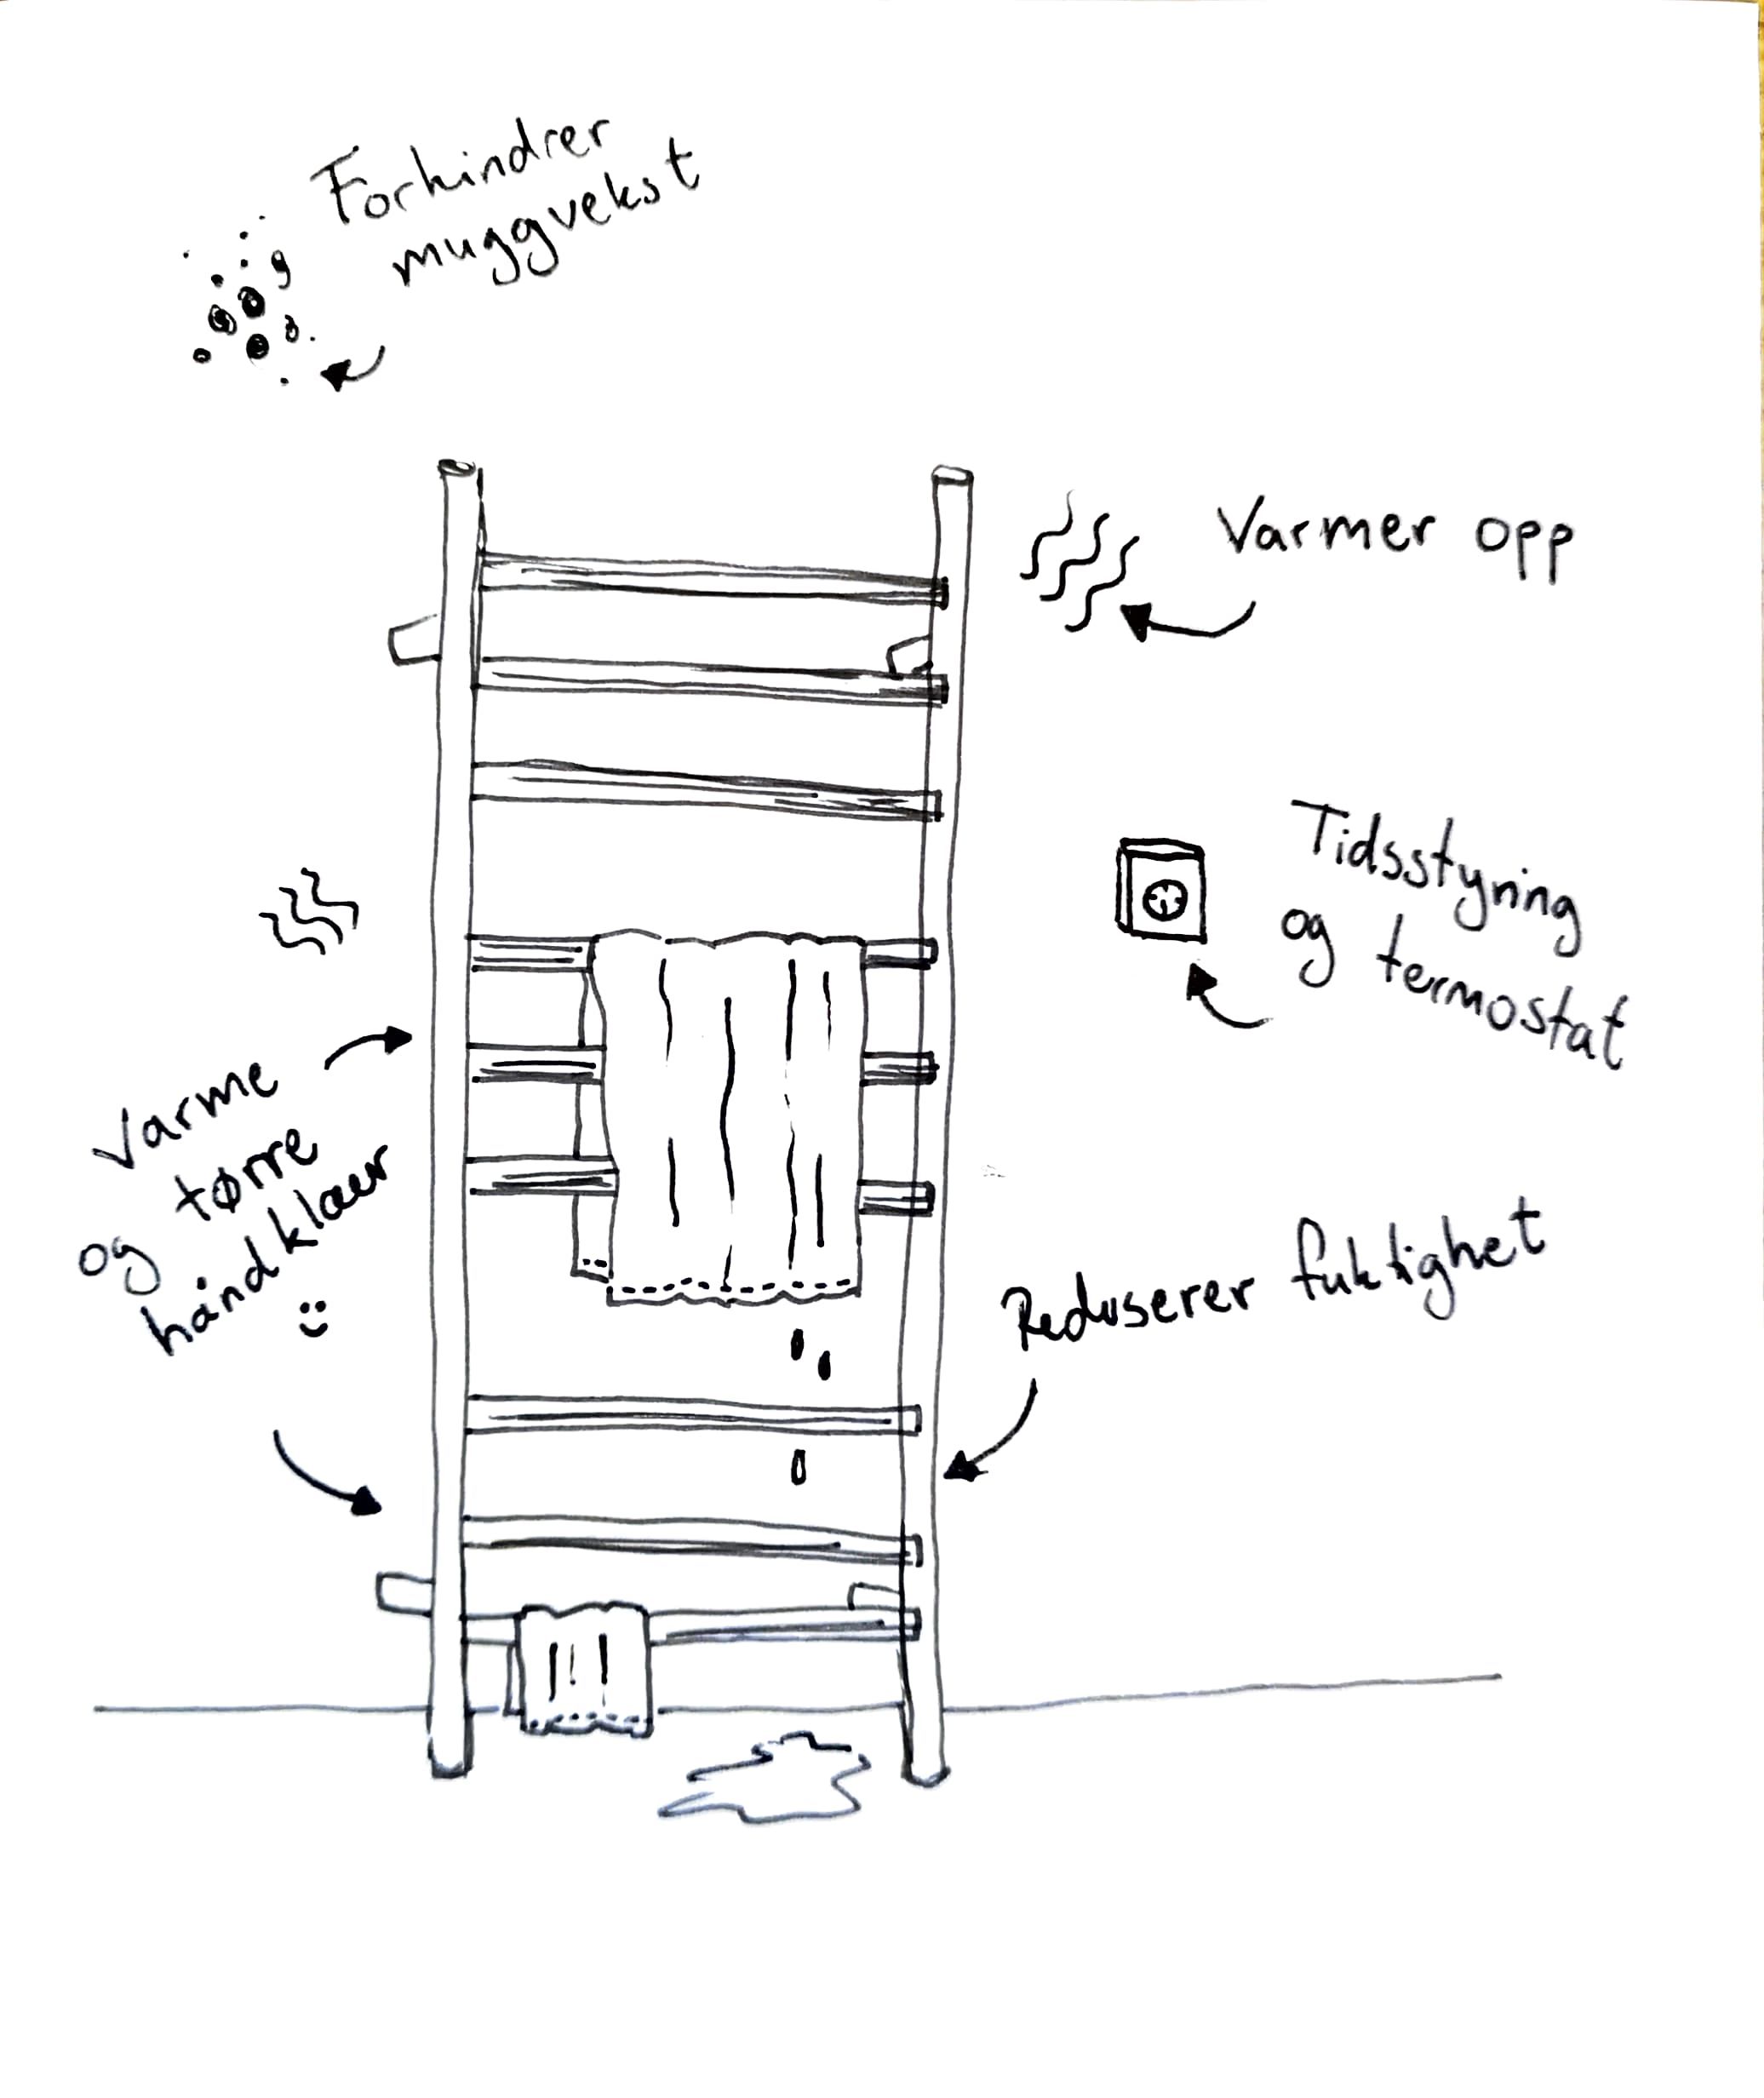 Forhindrer
muggvekst
Varmer opp
Tidsstyring
og termostat
Varme
og tørre
håndklær
Reduserer fuktighet